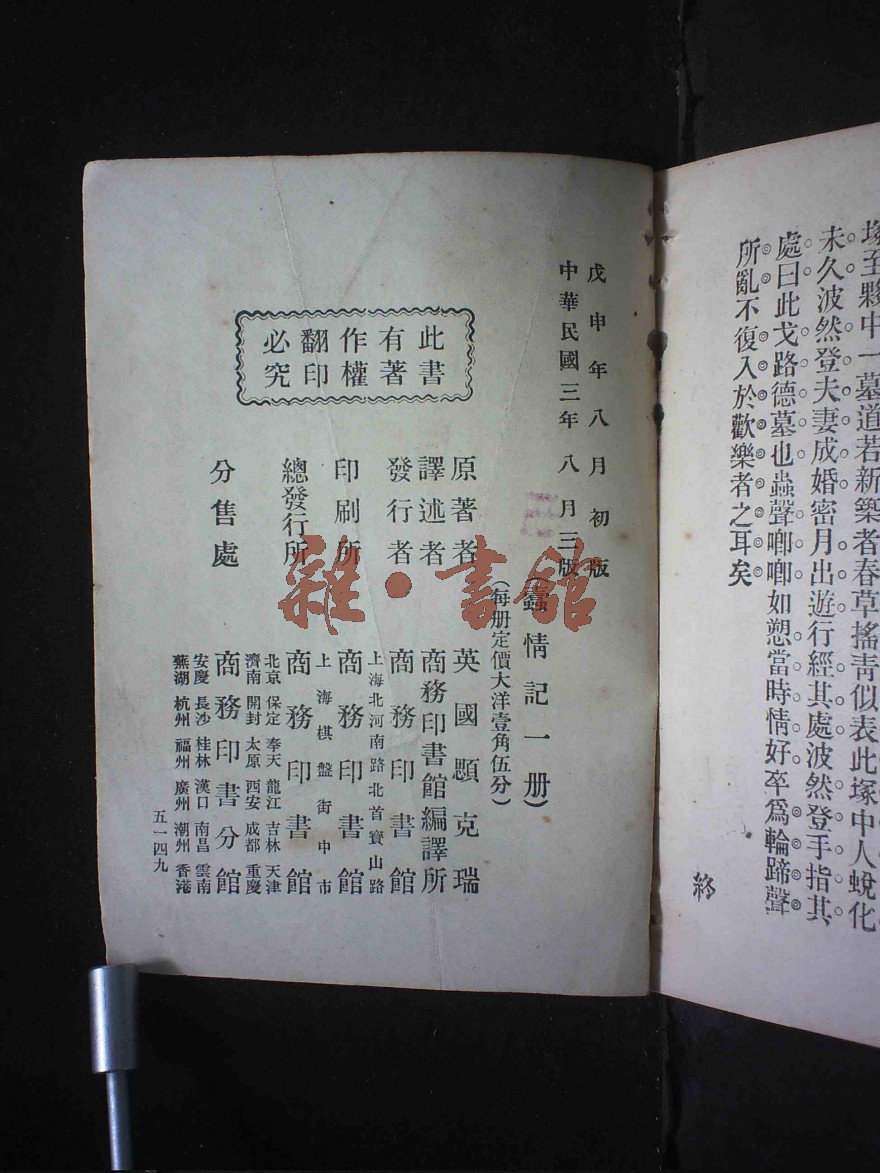 塚至夥中一墓道若新築者春草搖靑似表此塚中人蛻化
未久波然登夫妻成婚密月出遊行經其處波然登手指其
處曰此戈路德墓也蟲聲喞喞如愬當時情好卒爲輪蹄聲
所亂不復入於歡樂者之耳矣
終
戊申年八月初版
中華民國三年八月三版
(蠱情記一册)
(每册定價大洋壹角伍分)
此書有著作權翻印必究
原著者 英國顋克瑞
譯述者 商務印書館編譯所
發行者 商務印書館
上海北河南路北首寶山路
印刷所 商務印書館
上海棋盤街中市
總發行所 商務印書館
北京 保定 奉天 龍江 吉林 天津
濟南 開封 太原 西安 成都 重慶
分售處 商務印書分館
安慶 長沙 桂林 漢口 南昌 雲南
蕪湖 杭州 福州 廣州 潮州 香港
五一四九
雜·書館